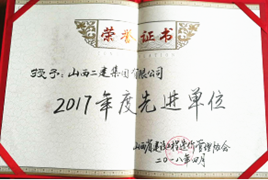 荣誉证书
授予：山西二建集团有限公司
2017年度先进单位
山西省建设工程造价管理协会
二〇一八年四月